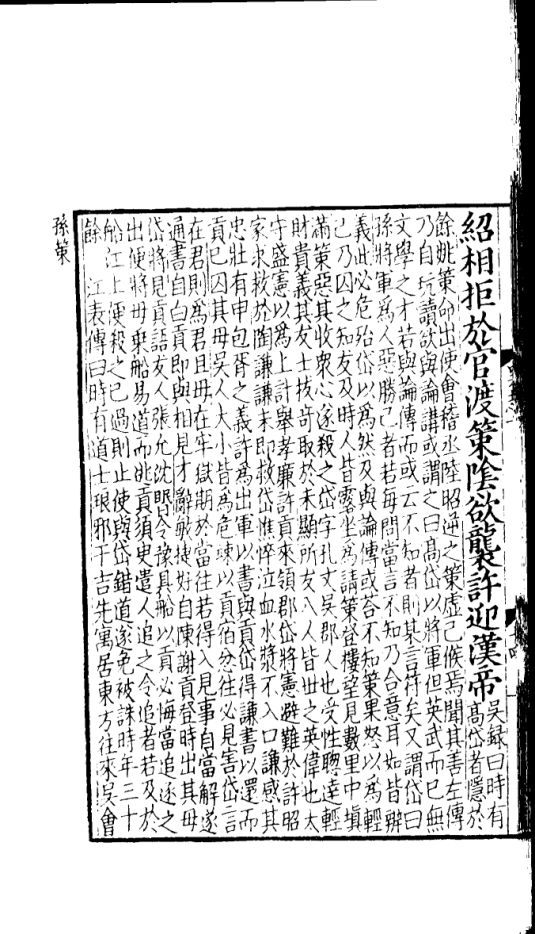 紹相拒於官渡策陰欲襲許迎漢帝吳録曰時有高岱者隱於
餘姚策命出使會稽丞陸昭逆之策虛己候焉聞其善左傳
乃自玩讀欲與論講或謂之曰高岱以將軍但英武而已無
文學之才若與論傳而或云不知者則某言符矣又謂岱曰
孫將軍為人惡勝己者若每問當言不知乃合意耳如皆辨
義此必危殆岱以為然及與論傳或荅不知策果怒以為輕
己乃囚之知友及時人皆露坐為請策登樓望見數里中填
滿策惡其收衆心遂殺之岱字孔文吳郡人也受性聰達輕
財貴義其友士拔奇取於未顯所友八人皆世之英偉也太
守盛憲以為上計舉孝廉許貢來領郡岱將憲避難於許昭
家求救於陶謙謙未即救岱憔悴泣血水漿不入口謙感其
忠壯有申包胥之義許為出軍以書與貢岱得謙書以還而
貢已囚其母吳人大小皆為危竦以貢宿忿往必見害岱言
在君則為君且母在牢獄期於當往若得入見事自當解遂
通書自白貢即與相見才辭敏捷好自陳謝貢登時出其母
岱將見貢語友人張允沈䁒令豫具船以貢必悔當追逐之
出便將母乘船易道而逃貢須臾遣人追之令追者若及於
船江上便殺之已過則止使與岱錯道遂免被誅時年三十
餘　江表傳曰時有道士琅邪于吉先寓居東方往來吳會
孫策